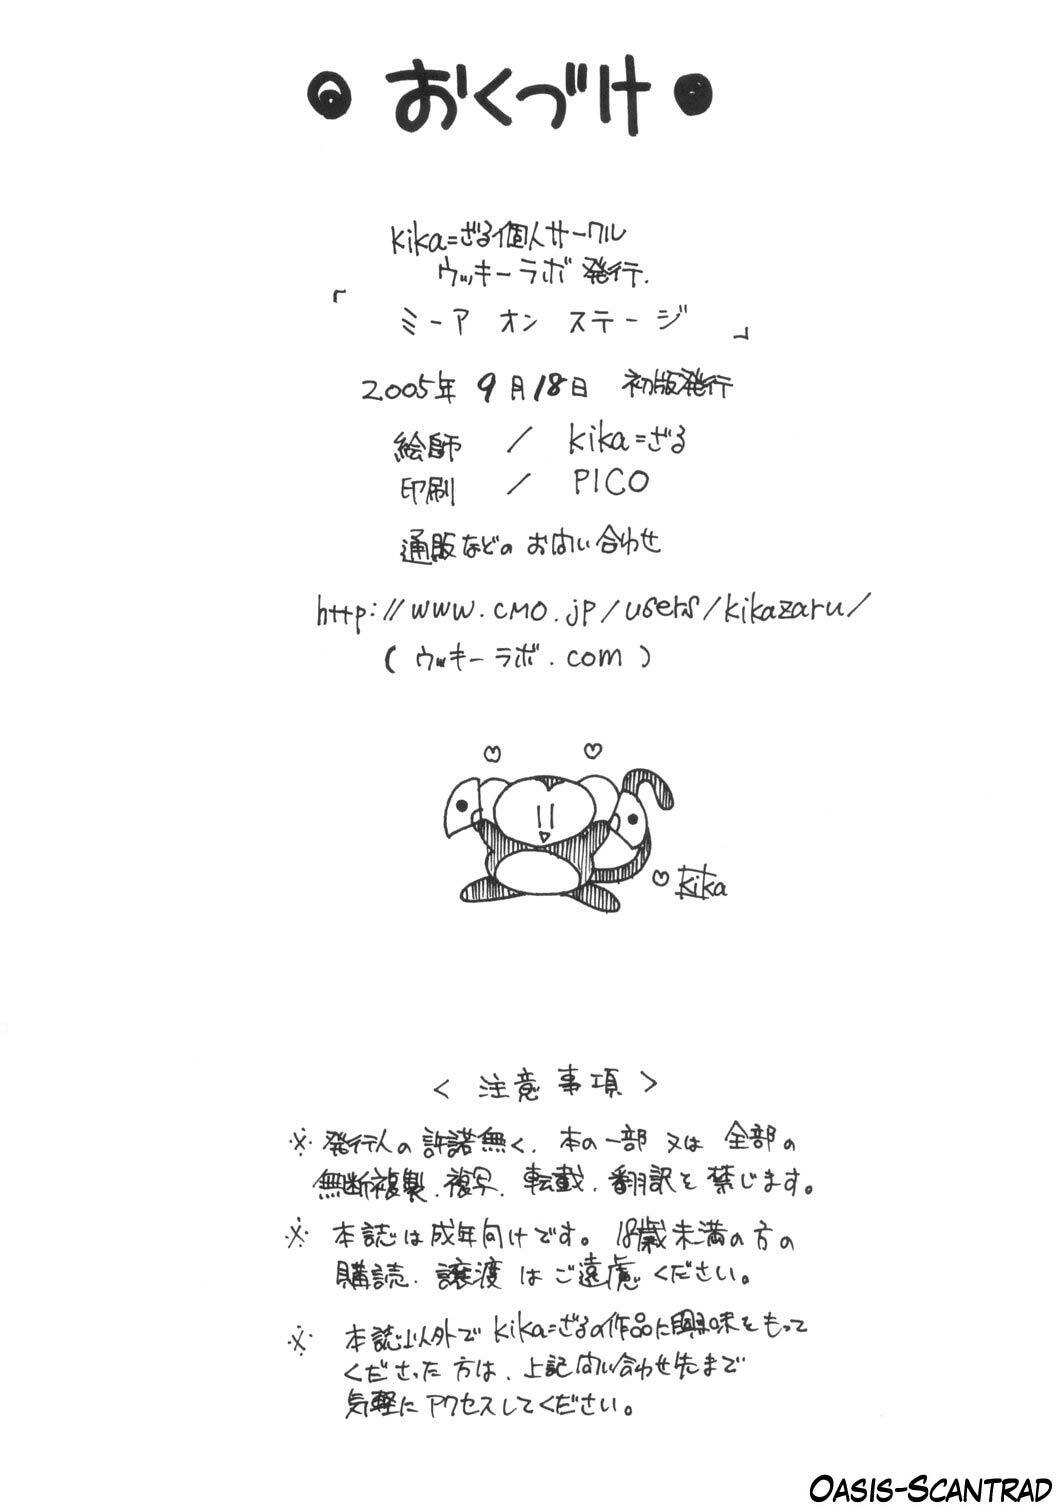 おくづけ
kika=ざる個人サークル
ウッキーラボ 発行.
「
ミーア オン ステージ
」
2005年 9月18日 初版発行
絵師 / kika=ざる
印刷 / PICO
通販などの お問い合わせ
http://www.cmo.jp/users/kikazaru/
( ウッキーラボ.com )
kika
< 注意事項 >
※ 発行人の許諾無く、本の一部 又は 全部の
無断複製、複写、転載、翻訳を禁じます。
※ 本誌は成年向けです。18歳未満の方の
購読、譲渡はご遠慮ください。
※ 本誌以外でkika=ざるの作品に興味をもって
くださった方は、上記問い合わせ先まで
気軽にアクセスしてください。
Oasis-Scantrad